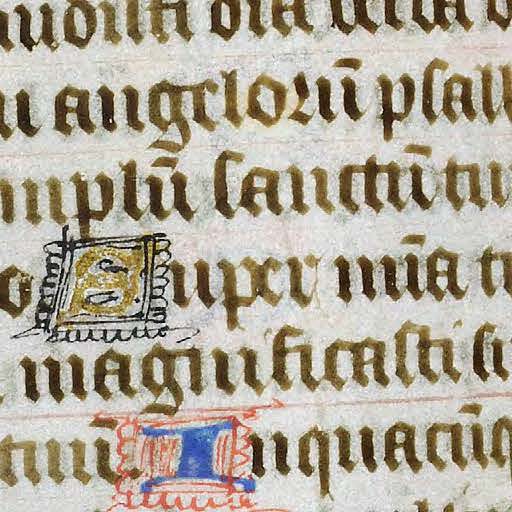 audisti oīa uerba o
u angelorū psall
mplū sanctū tu
o Super mīa tu
magnificasti su
tuū. Inquacūq